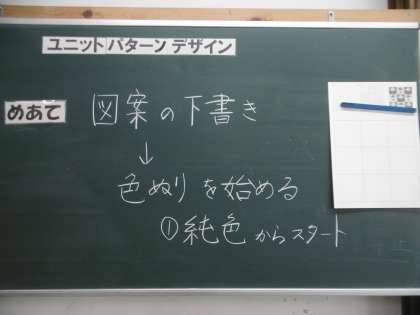 ユニットパターンデザイン
めあて 図案の下書き
↓
色ぬりを始める
①純色からスタート